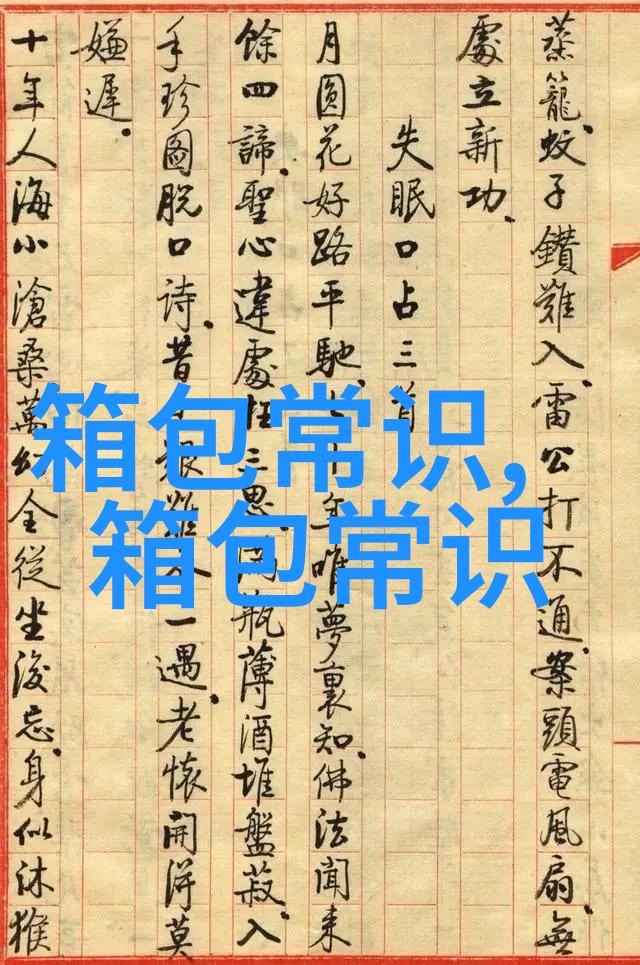 蒸籠蚊子鑽難入雷公打不通案頭電風扇無
處立新功
失眠口占三首
月圓花好路平馳七十年唯夢裏知佛法聞来
餘四諦聖心違處三思瓶薄酒堆盤菽入
手珍圖脫口詩昔一遇老懷開得莫
嫌遲
十年人海小滄桑萬全從坐後忘身似沐猴
箱包常识,
箱包常识